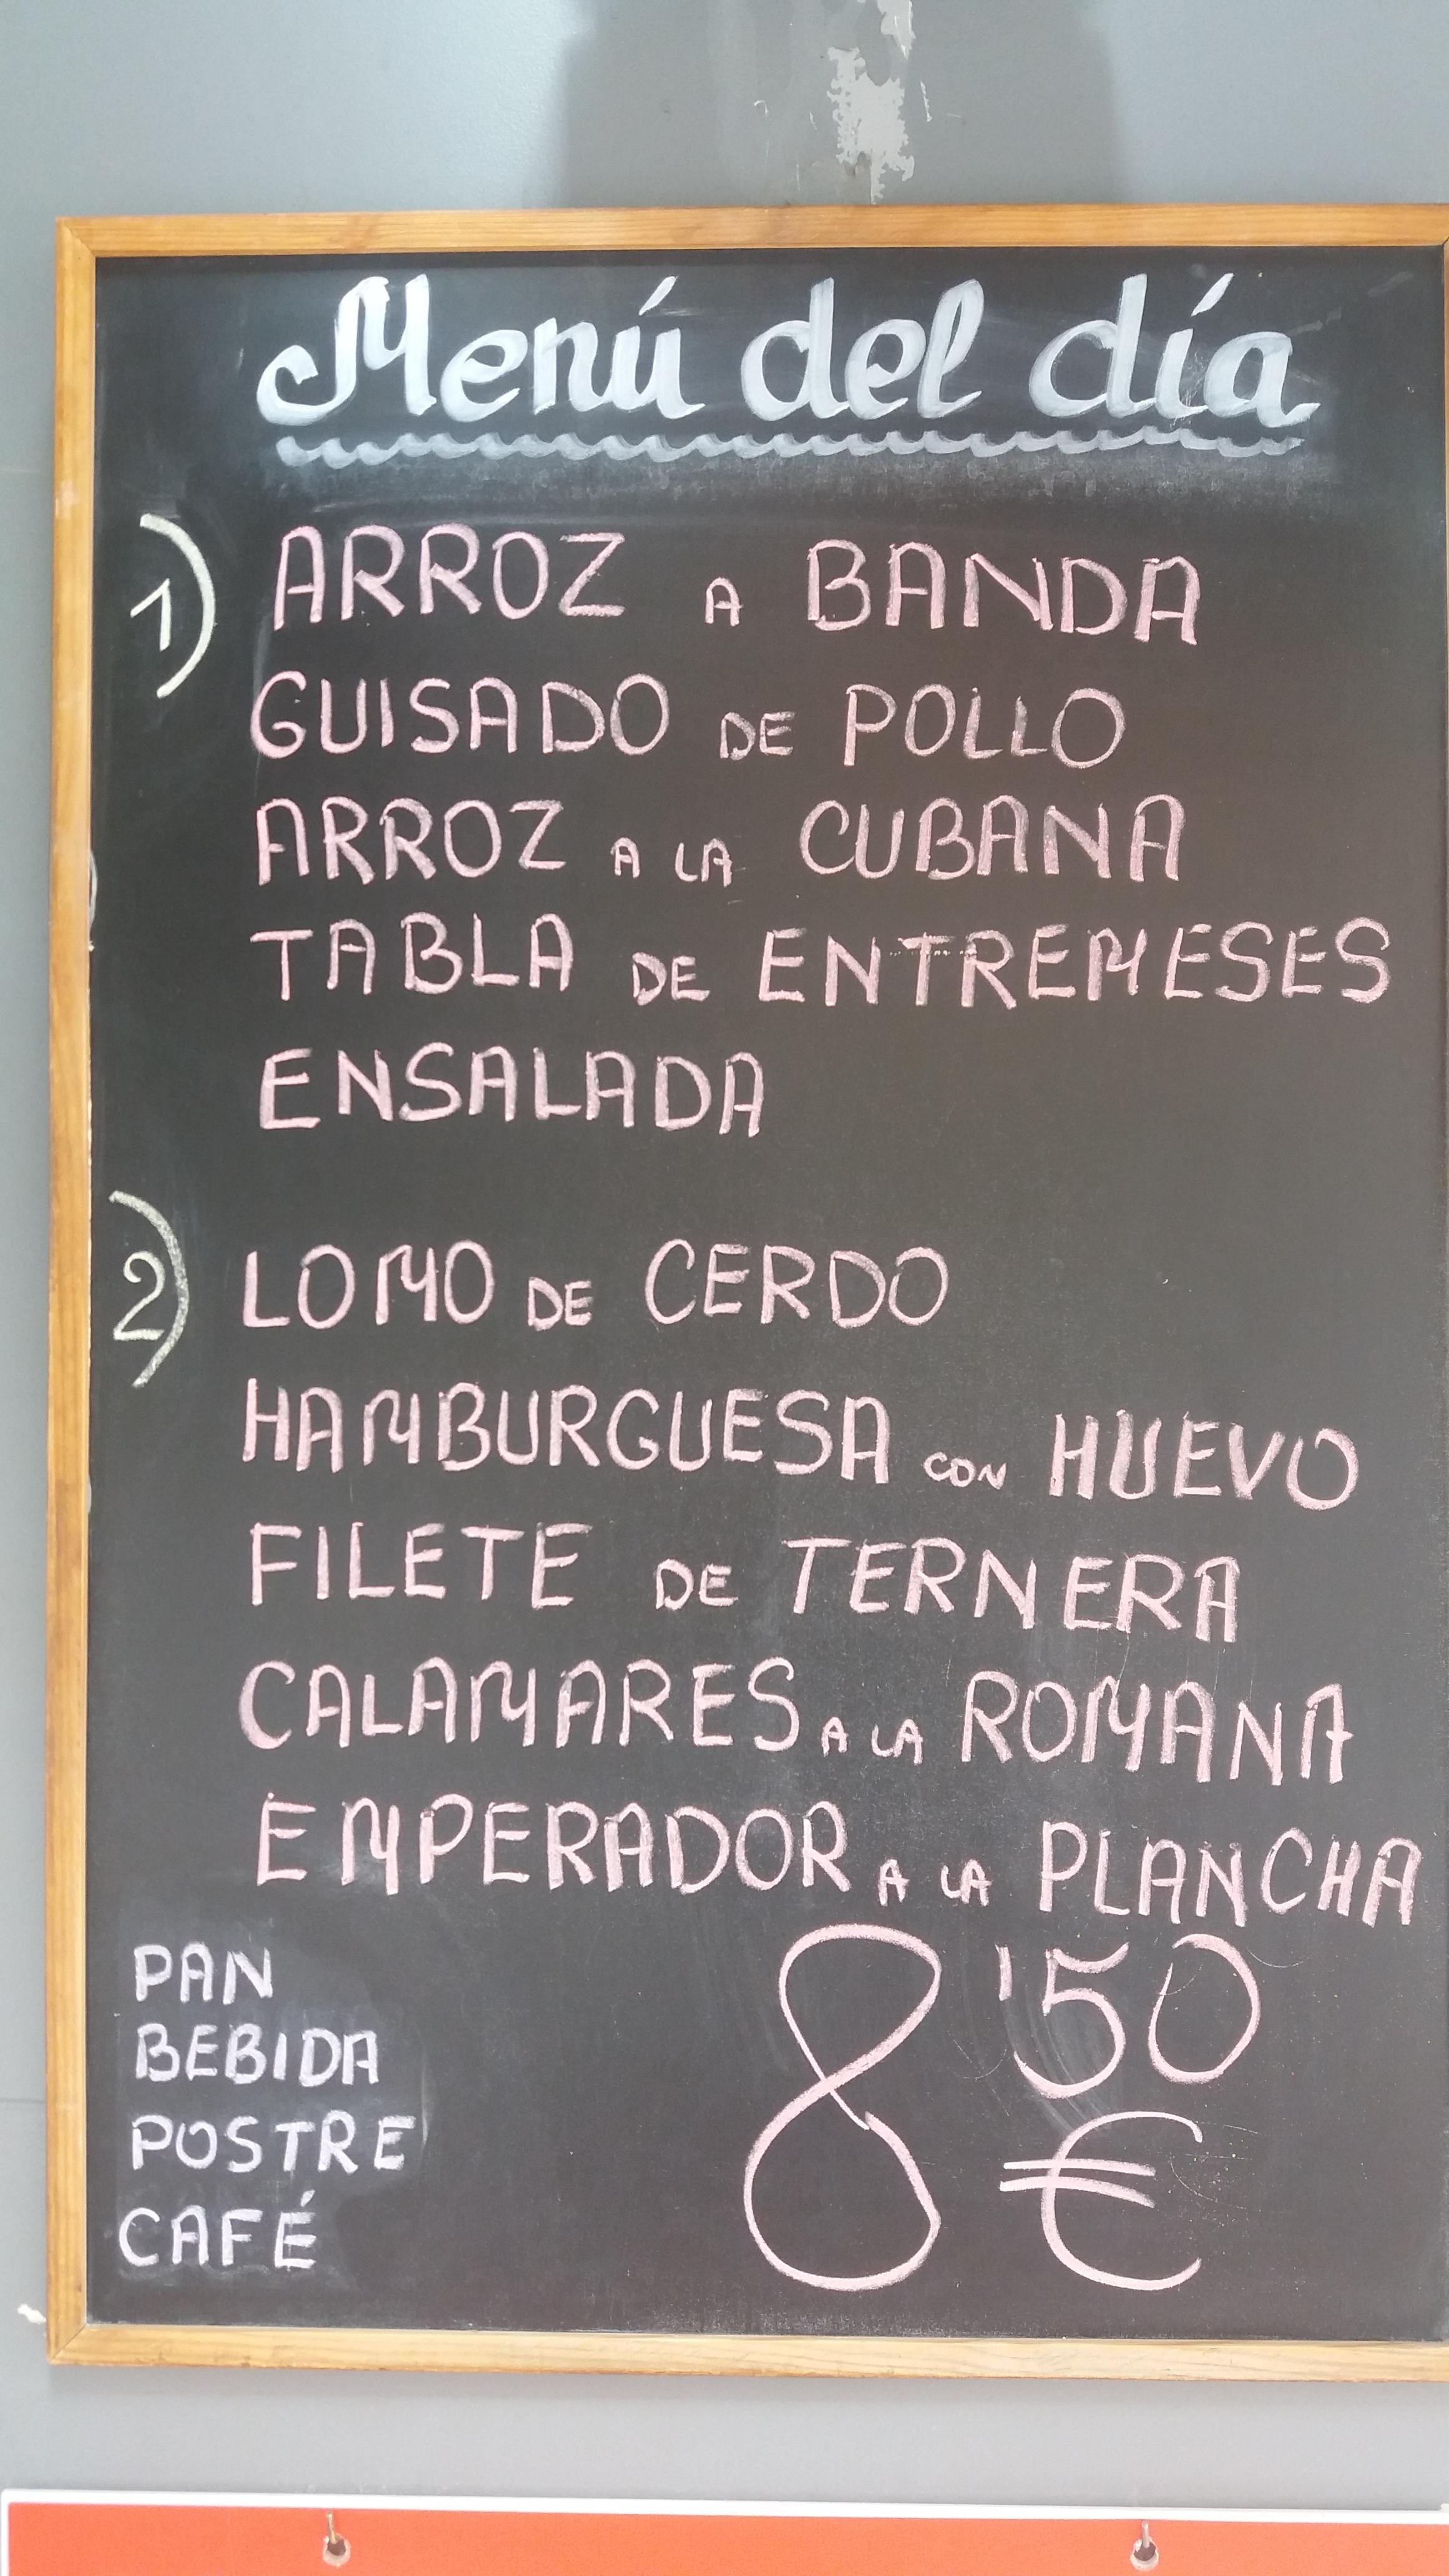 Menú del día
1) ARROZ A BANDA
GUISADO DE POLLO
ARROZ A LA CUBANA
TABLA DE ENTREMESES
ENSALADA
2) LOMO DE CERDO
HAMBURGUESA CON HUEVO
FILETE DE TERNERA
CALAMARES A LA ROMANA
EMPERADOR A LA PLANCHA
PAN
BEBIDA
POSTRE
CAFÉ
8'50
€